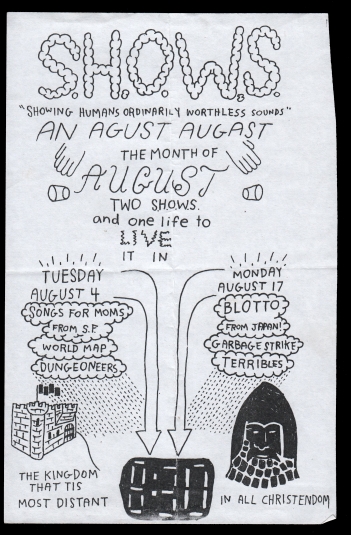 S.H.O.W.S.
"SHOWING HUMANS ORDINARILY WORTHLESS SOUNDS"
AN AGUST AUGAST
THE MONTH OF
AUGUST
TWO S.H.O.W.S.
and one life to
LIVE
IT IN
TUESDAY
AUGUST 4
SONGS FOR MOMS
FROM S.F.
WORLD MAP
DUNGEONEERS
MONDAY
AUGUST 17
BLOTTO
FROM JAPAN!
GARBAGE STRIKE
TERRIBLES
THE KINGDOM
THAT TIS
MOST DISTANT
IN ALL CHRISTENDOM